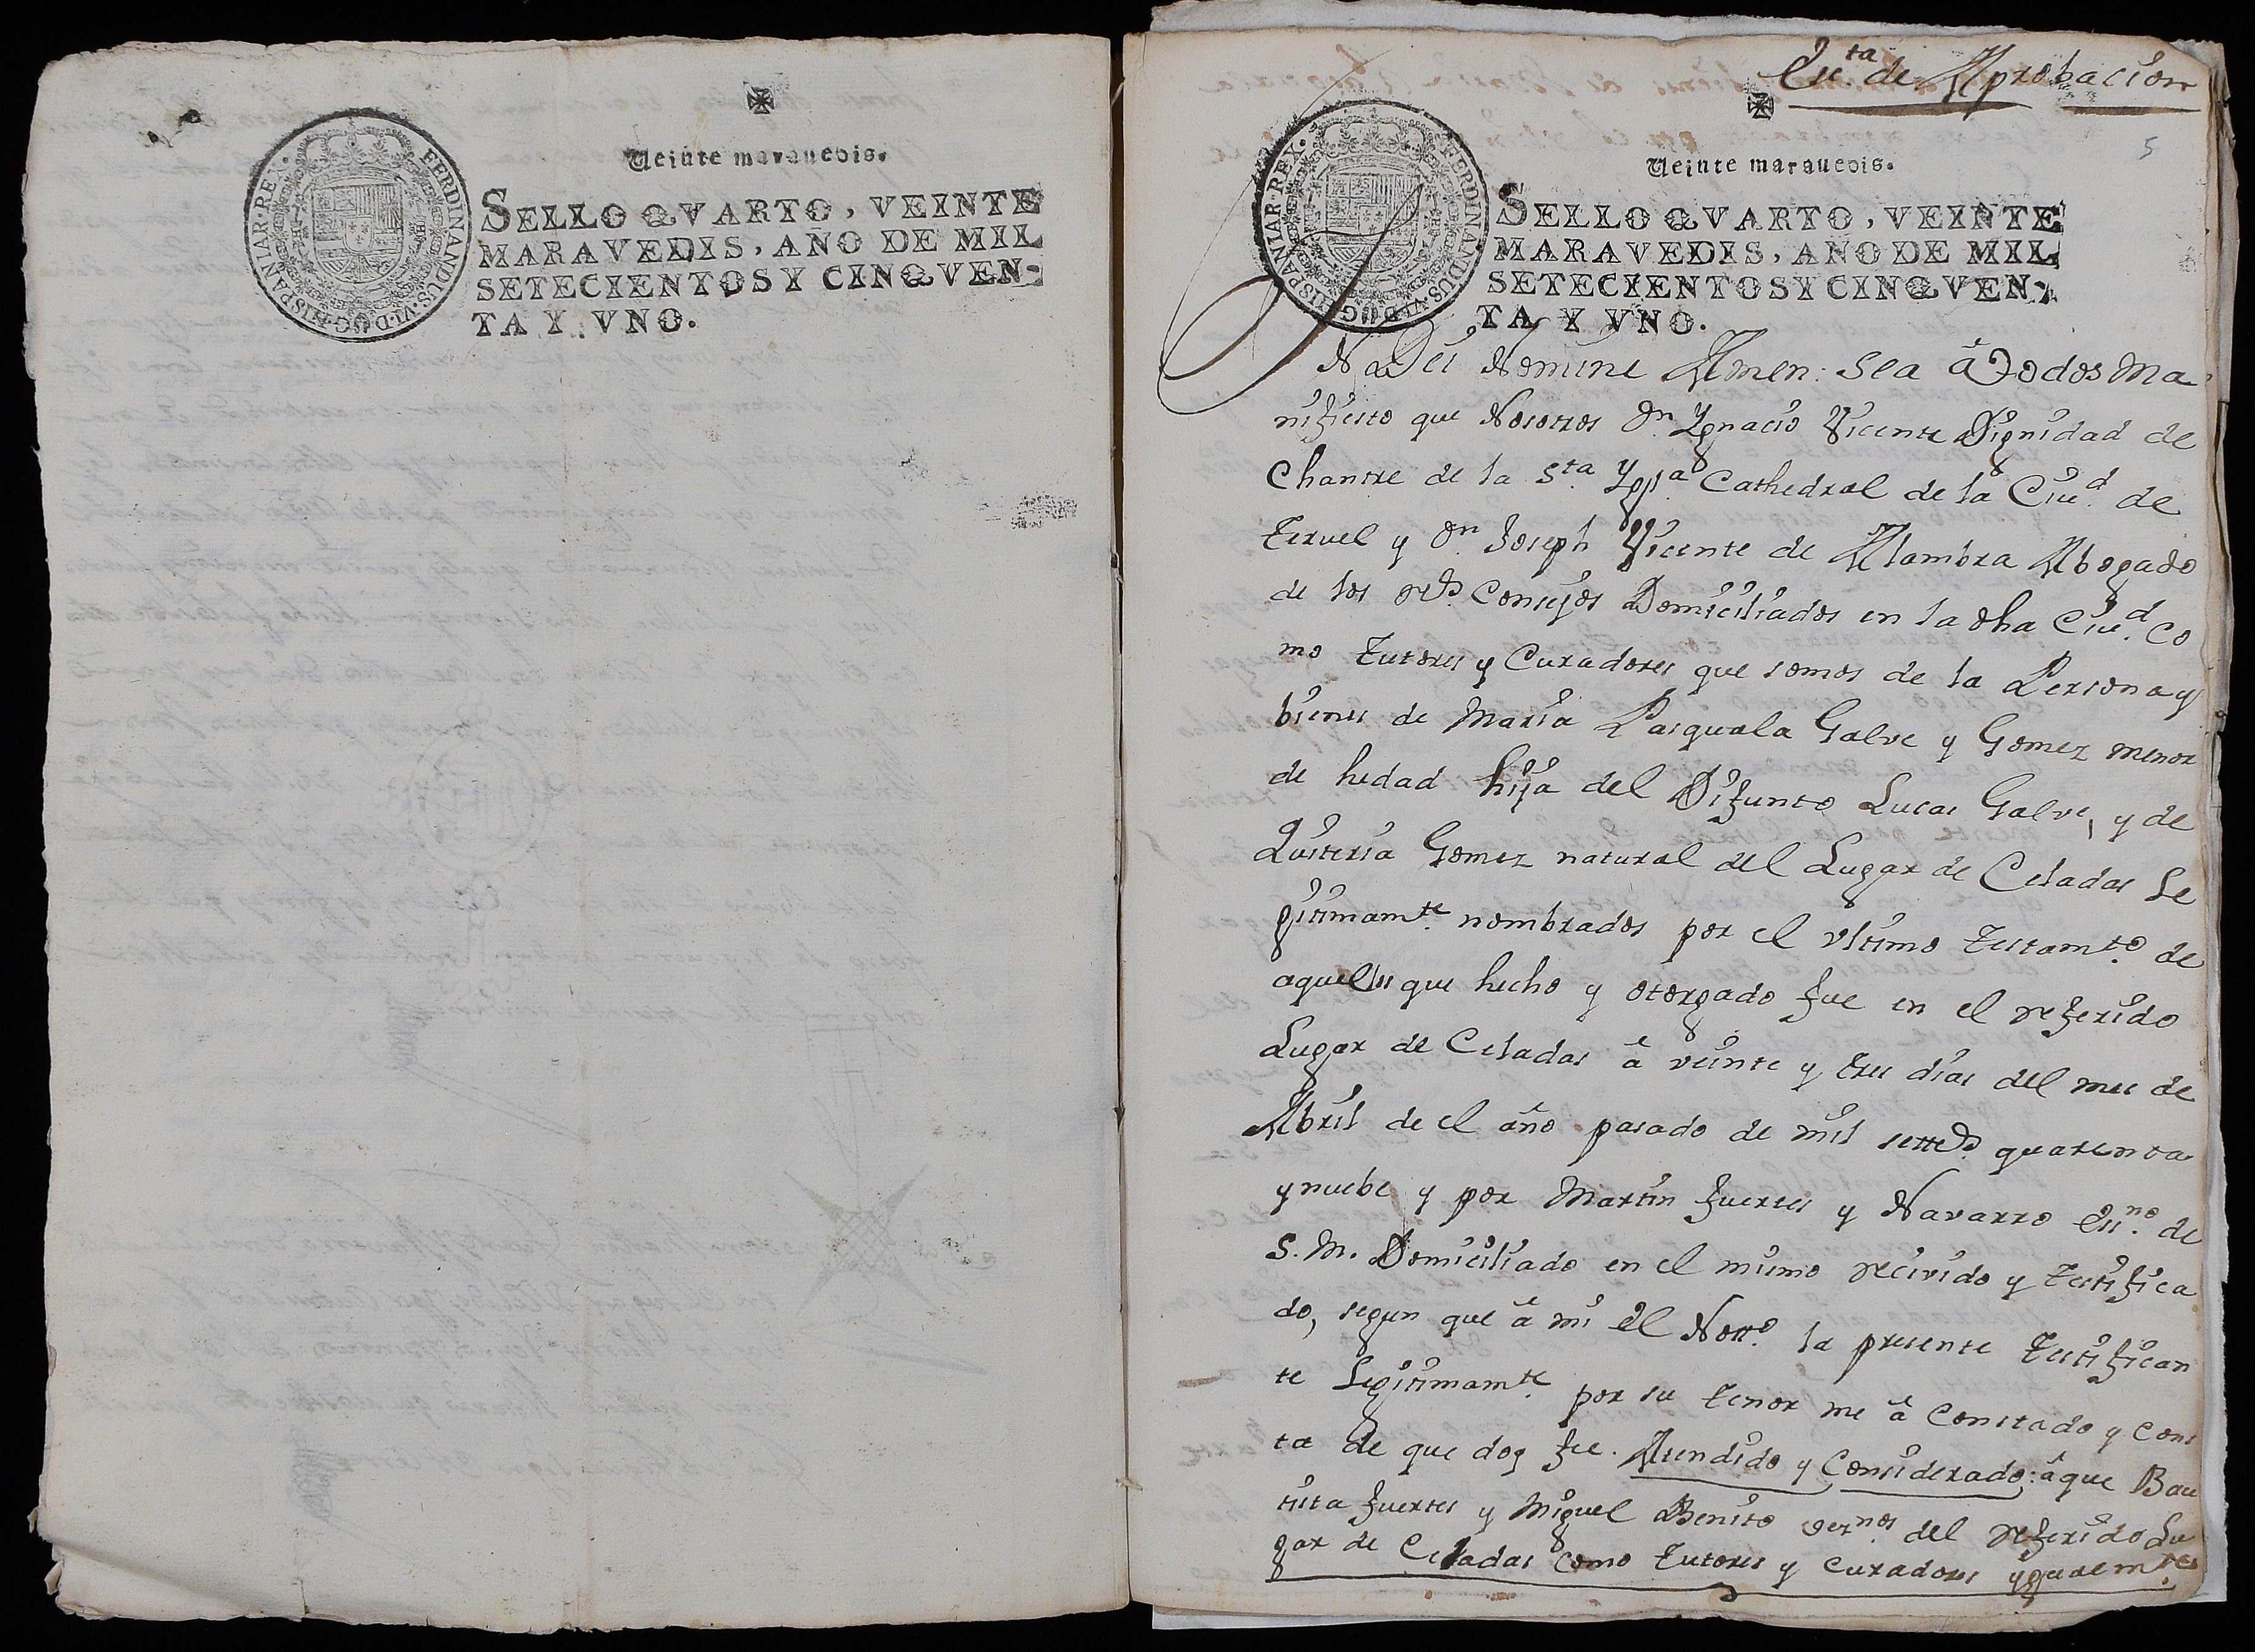 Veinte maravedis.
SELLO QVARTO, VEINTE
MARAVEDIS, AÑO DE MIL
SETECIENTOS Y CINQVEN-
TA Y VNO.
FERDINANDUS·VI·D·G·HISPANIAR·REX·
Esc.ta de Aprobacion
5
Veinte maravedis.
SELLO QVARTO, VEINTE
MARAVEDIS, AÑO DE MIL
SETECIENTOS Y CINQVEN-
TA Y VNO.
FERDINANDUS·VI·D·G·HISPANIAR·REX·
In Dei Nomine Amen: Sea â Todos Ma
nifiesto que Nosotros Dn. Ygnacio Vicente Dignidad de
Chantre de la Sta. Yglª Cathedral de la Ciud. de
Teruel y Dn. Joseph Vicente de Alambra Abogado
de los Rs. Consejos Domiciliados en la dha Ciud. co
mo Tutores y Curadores que somos de la Persona y
bienes de Maria Pasquala Galve y Gomez menor
de hedad hija del Difunto Lucas Galve, y de
Quiteria Gomez natural del Lugar de Celadas Le
gitimamte. nombrados por el vltimo Testamto. de
aquel que hecho y otorgado fue en el referido
Lugar de Celadas â veinte y tres dias del mes de
Abril de el año pasado de mil settes. quarenta
y nuebe y por Martin Fuertes y Navarro Essno. de
S. M. Domiciliado en el mismo recivido y testifica
do, segun que â mi el Notto. la presente testifican
te Legitimamte. por su tenor me â Constado y cons
ta de que doy fee. Atendido y Considerado: â que Bau
tista Fuertes y Miguel Benito veznos. del referido Lu
gar de Celadas como Tutores y Curadores ygualmte.